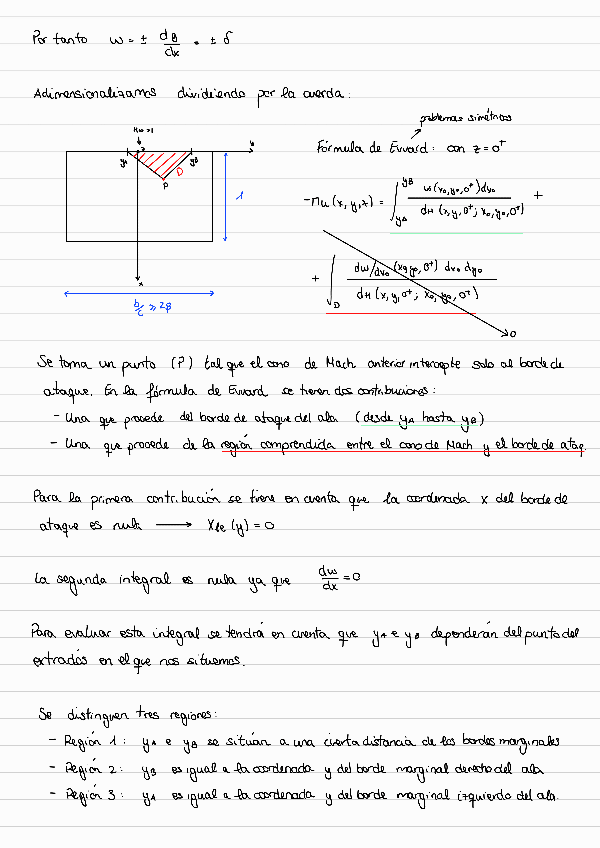 Por tanto w = ± dβ/dx = ± δ
Adimensionalizamos dividiendo por la cuerda:
problemas simétricos
Fórmula de Evvard: con z=0⁺
y
yA yB
D
P
1
x
b/c ≥ 2β
-πu (x, y, z) = ∫_yA^yB w(x₀,y₀,0⁺)dy₀ / dH (x,y,0⁺; x₀,y₀,0⁺) +
+ ∫_D dw/dx₀ (x₀,y₀,0⁺) dx₀ dy₀ / dH (x,y,0⁺; x₀,y₀,0⁺)
0
Se toma un punto (P) tal que el cono de Mach anterior intercepte solo al borde de
ataque. En la fórmula de Evvard se tienen dos contribuciones:
- Una que procede del borde de ataque del ala (desde yA hasta yB)
- Una que procede de la región comprendida entre el cono de Mach y el borde de ataq.
Para la primera contribución se tiene en cuenta que la coordenada x del borde de
ataque es nula ⟶ Xle (y) = 0
La segunda integral es nula ya que dw/dx = 0
Para evaluar esta integral se tendrá en cuenta que yA e yB dependerán del punto del
extradós en el que nos situemos.
Se distinguen tres regiones:
- Región 1: yA e yB se sitúan a una cierta distancia de los bordes marginales
- Región 2: yB es igual a la coordenada y del borde marginal derecho del ala
- Región 3: yA es igual a la coordenada y del borde marginal izquierdo del ala.